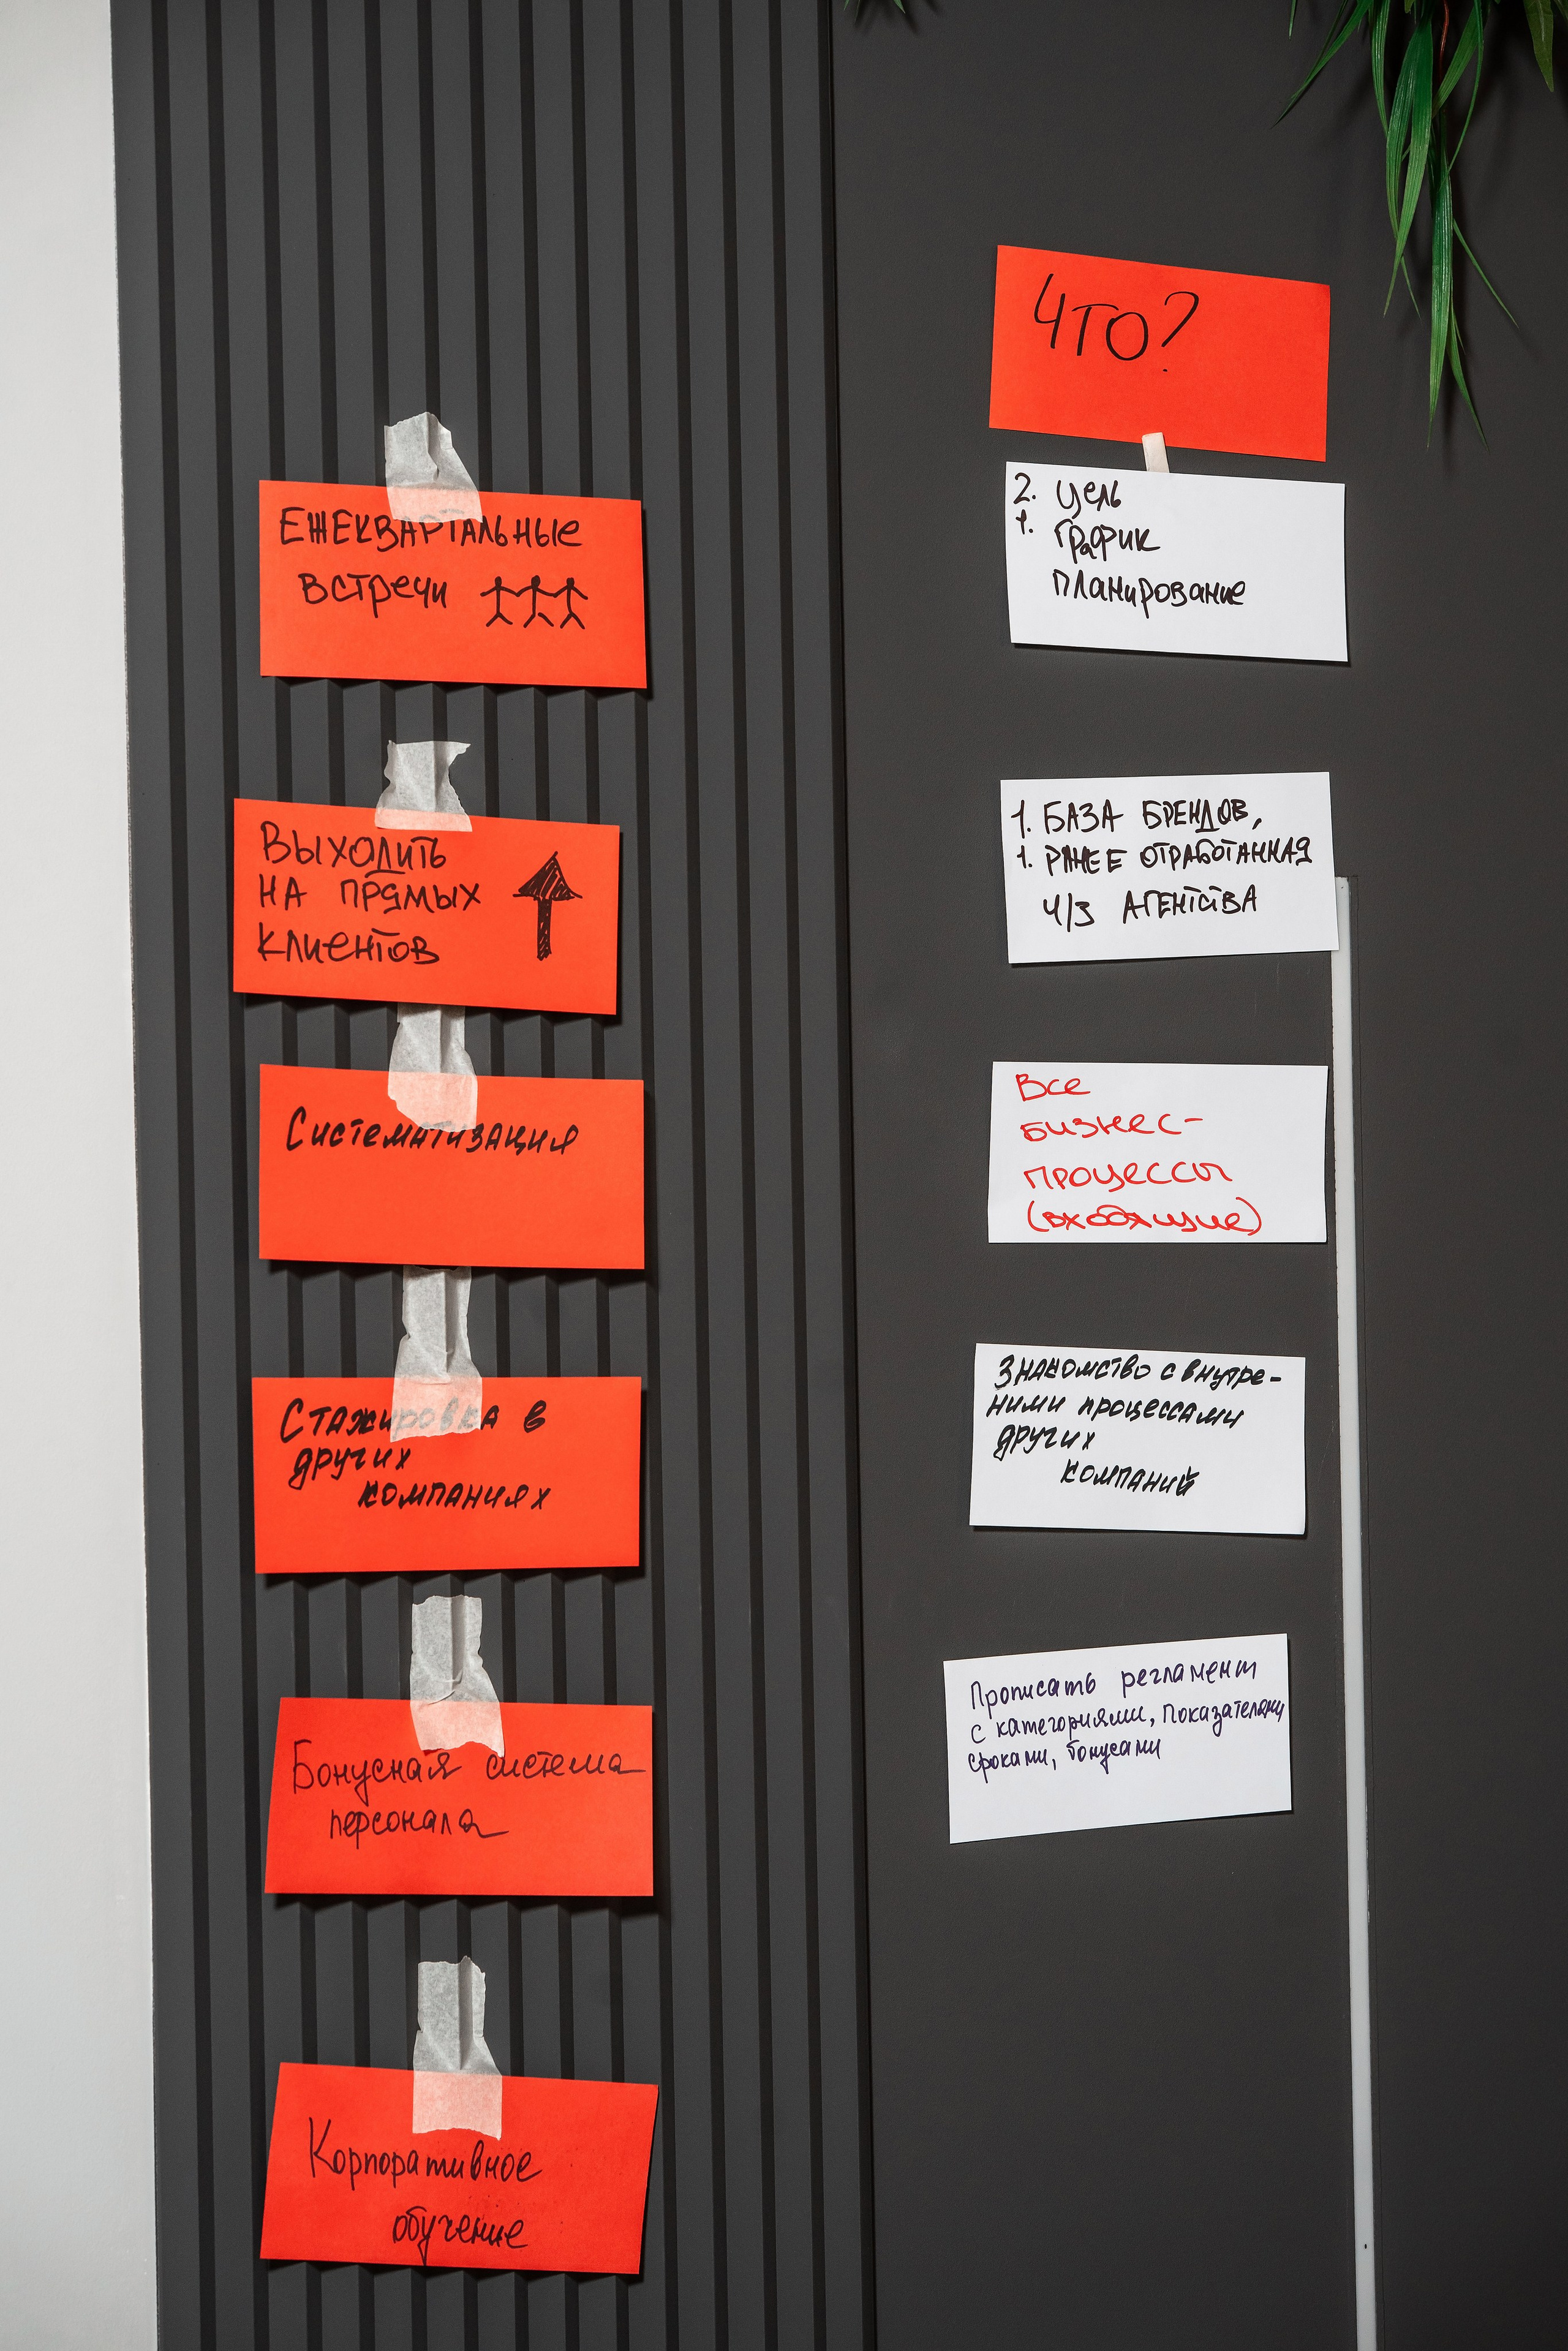 ЕЖЕКВАРТАЛЬНЫЕ
встречи
ВЫХОДИТЬ
НА ПРЯМЫХ
КЛИЕНТОВ
Систематизация
Стажировка в
других
компаниях
Бонусная система
персонала
Корпоративное
обучение
ЧТО?
2. Цель
1. График
планирование
1. БАЗА БРЕНДОВ,
1. РАНЕЕ ОТРАБОТАННАЯ
Ч/З АГЕНТСТВА
Все
бизнес-
процессы
(входящие)
Знакомство с внутре-
ними процессами
других
компаний
Прописать регламент
с категориями, показателями
сроками, бонусами